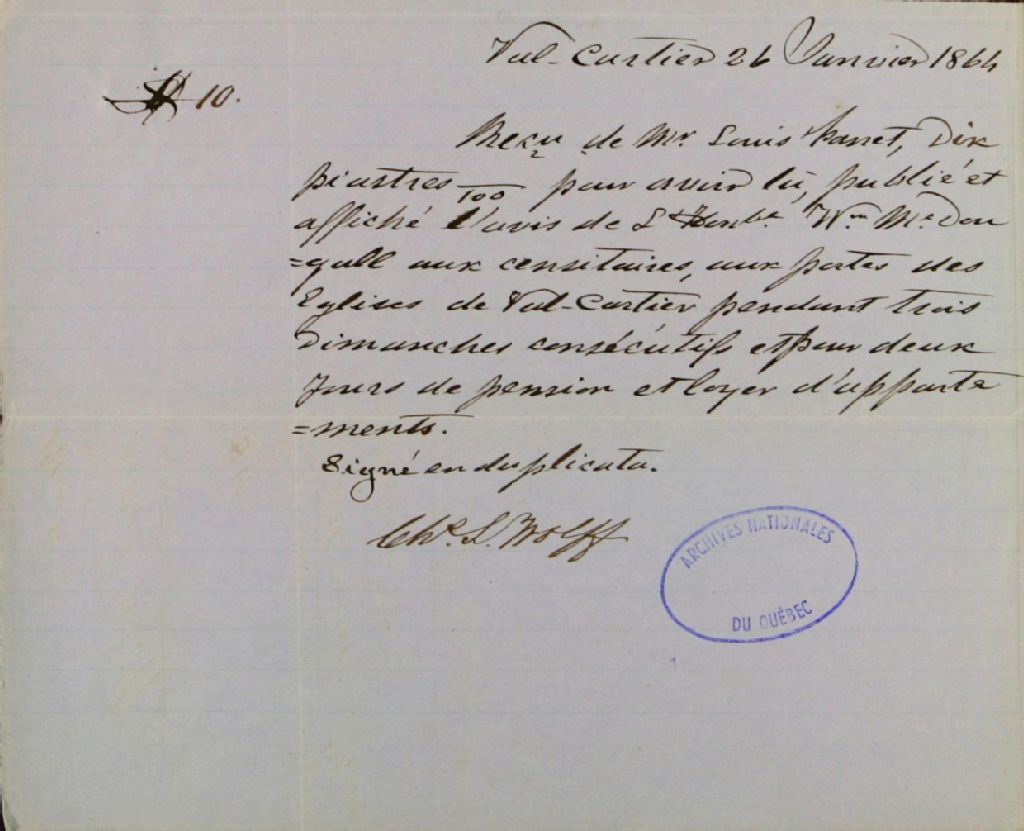 Val-Cartier 26 Janvier 1864
$ 10.
Recu de Mr. Louis Panet, Dix
piastres /100 pour avoir lû, publié et
affiché l'avis de L'Honble. Wm. Mc. Dou
=gall aux censitaires, aux portes des
Eglises de Val-Cartier pendant trois
Dimanches consécutifs et pour deux
Jours de pension et loyer d'apparte
=ments.
Signé en duplicata.
Chs. L. Wolff
ARCHIVES NATIONALES
DU QUÉBEC